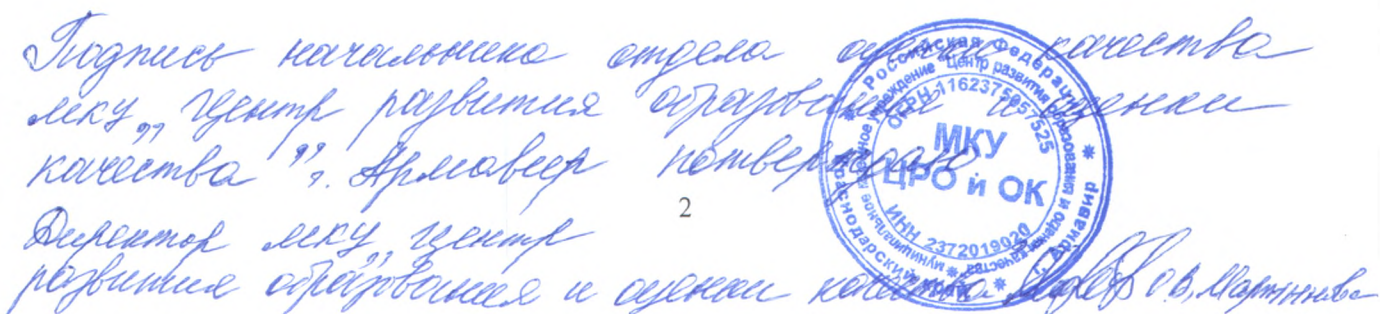 Подпись начальника отдела оценки качества
МКУ „Центр развития образования и оценки
качества" г. Армавир потверждаю.
2
Директор МКУ „Центр
развития образования и оценки качества О.В. Мартынова
Российская Федерация
Краснодарский край г. Армавир
муниципальное казенное учреждение "Центр развития образования и оценки качества"
ОГРН 1162375057525
МКУ
ЦРО и ОК
ИНН 2372019020